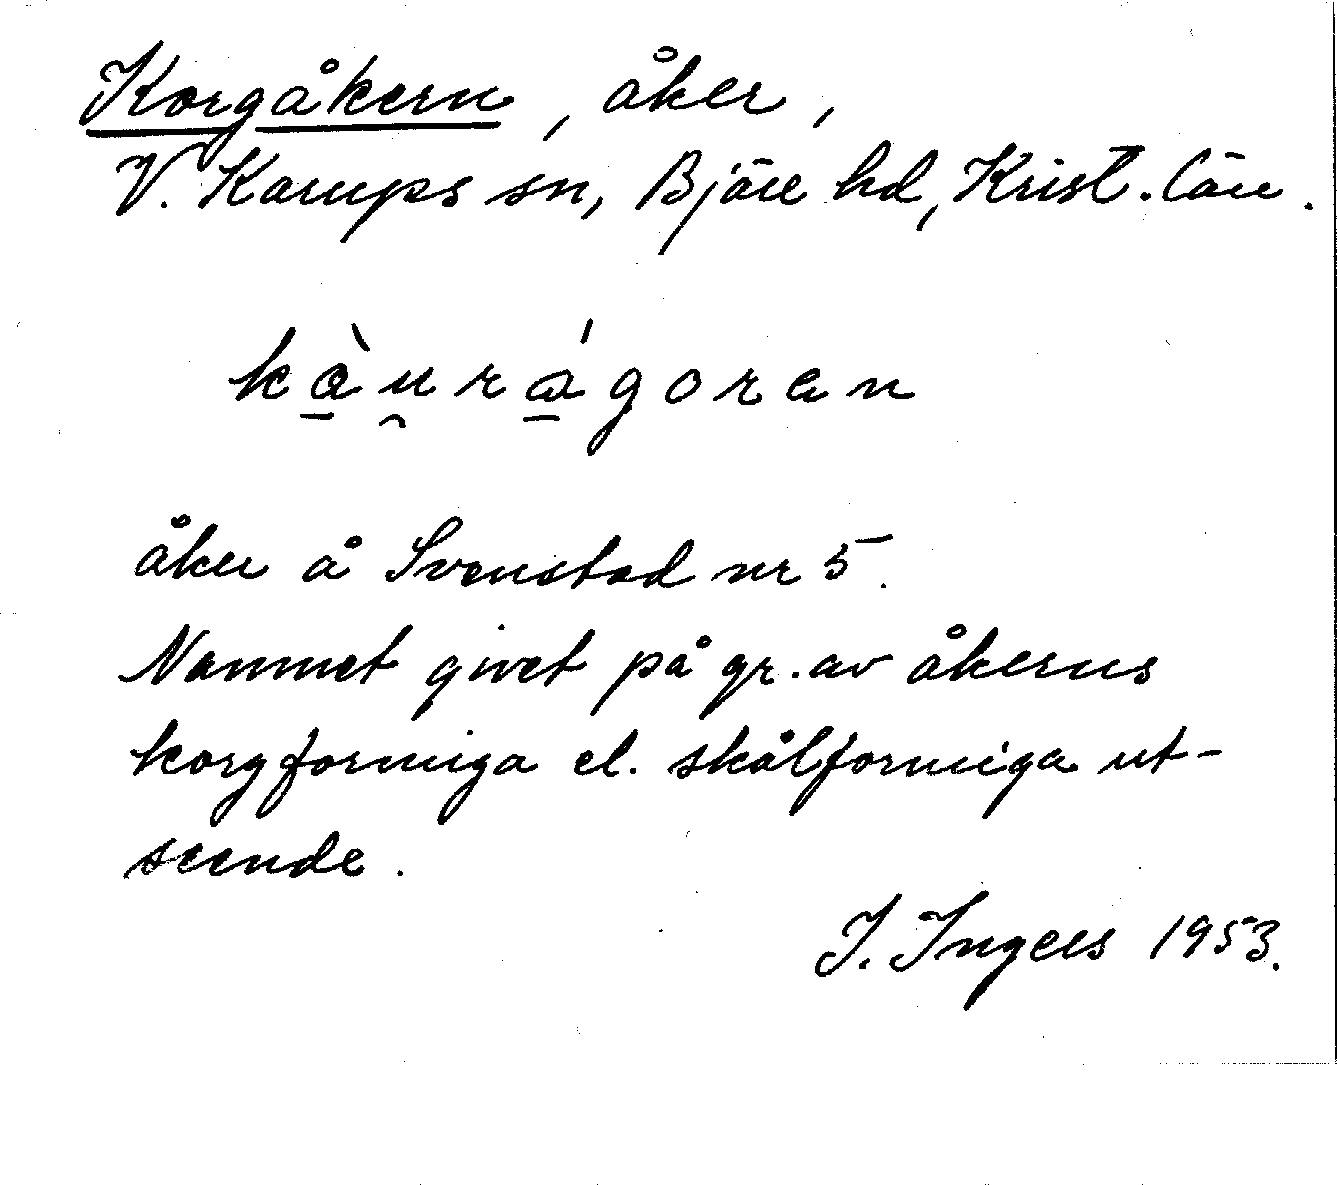 Korgåkern, åker,
V. Karups sn, Bjäre hd, Krist. län.
kàu̯rágoran
åker å Svenstad nr 5.
Namnet givet på gr. av åkerns
korgformiga el. skålformiga ut-
seende.
I. Ingers 1953.